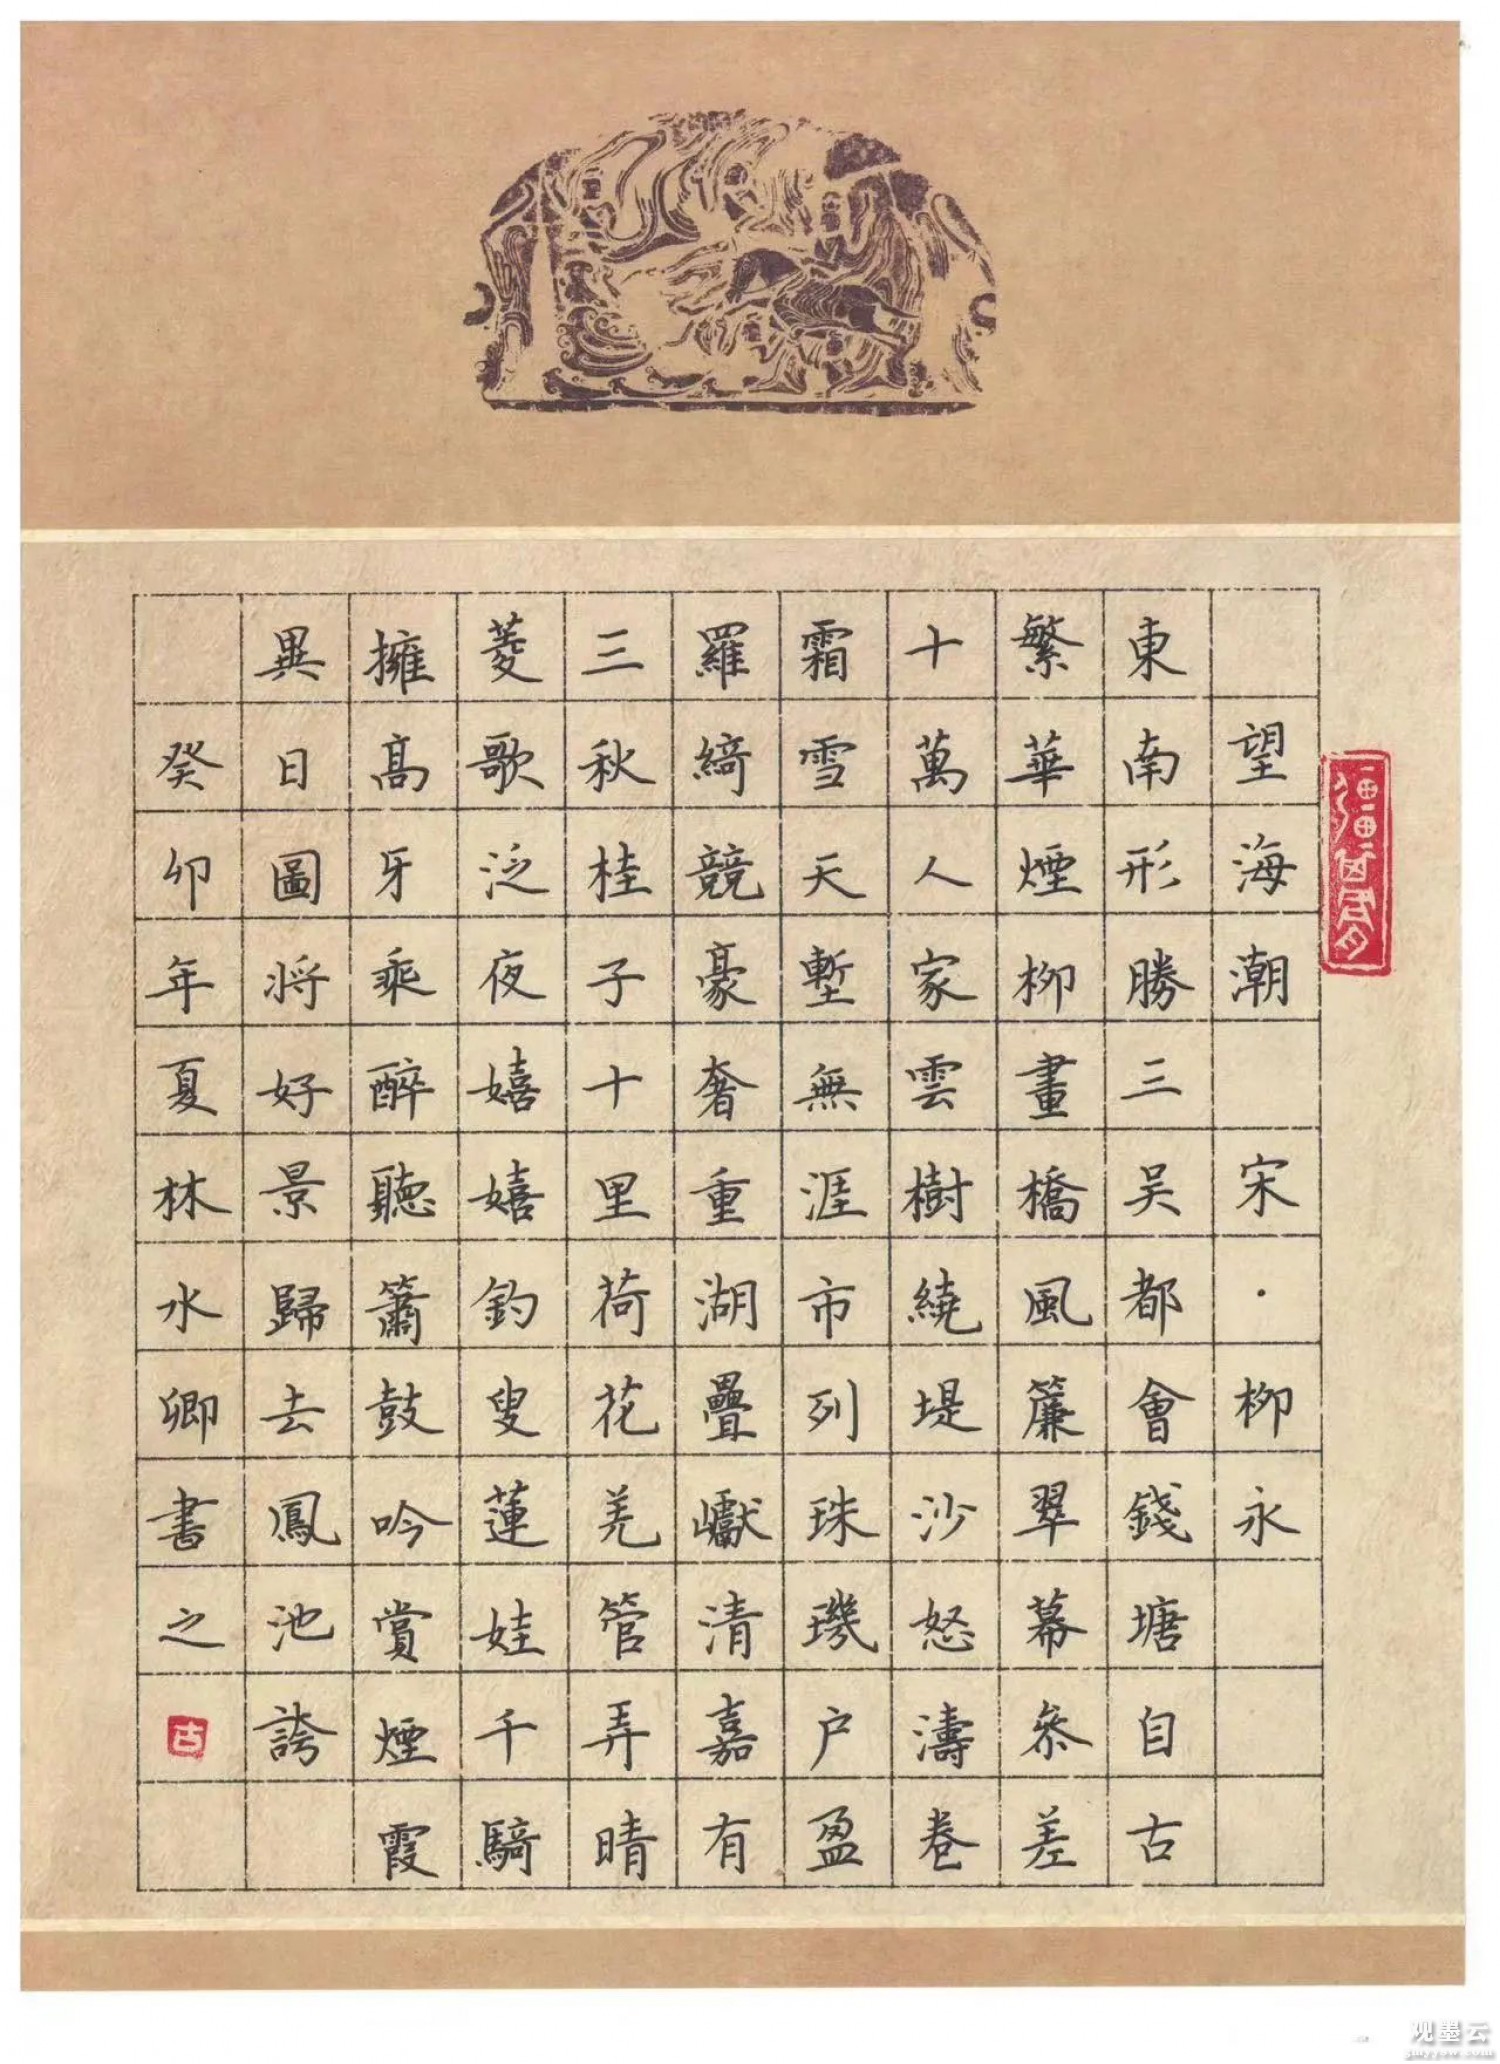 望海潮 宋·柳永
東南形勝三吴都會錢塘自古
繁華煙柳畫橋風簾翠幕叅差
十萬人家雲樹繞堤沙怒濤卷
霜雪天塹無涯市列珠璣户盈
羅綺競豪奢重湖疊巘清嘉有
三秋桂子十里荷花羌管弄晴
菱歌泛夜嬉嬉釣叟蓮娃千騎
擁高牙乘醉聽簫鼓吟賞煙霞
異日圖將好景歸去鳳池誇
癸卯年夏林水卿書之
古
观墨云